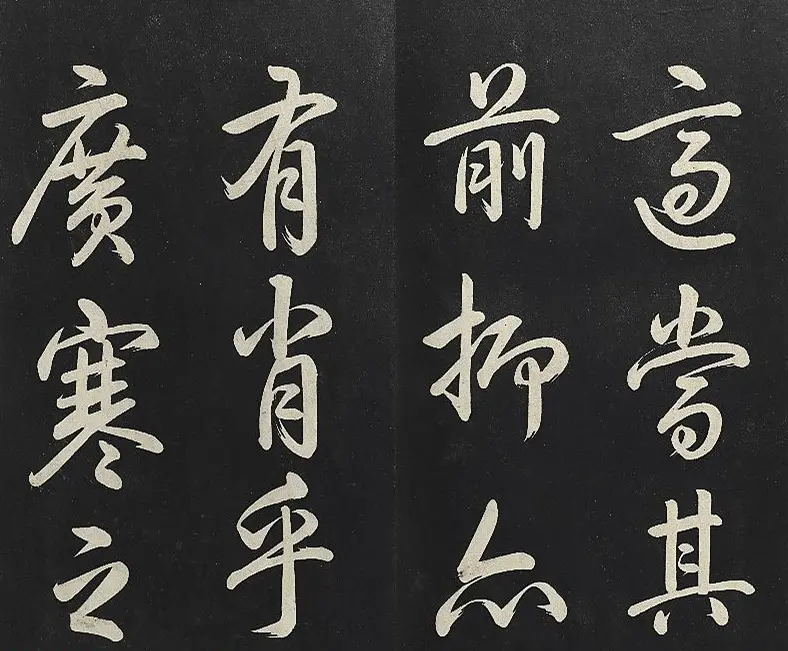 適當其
前抑亦
有肖乎
廣寒之